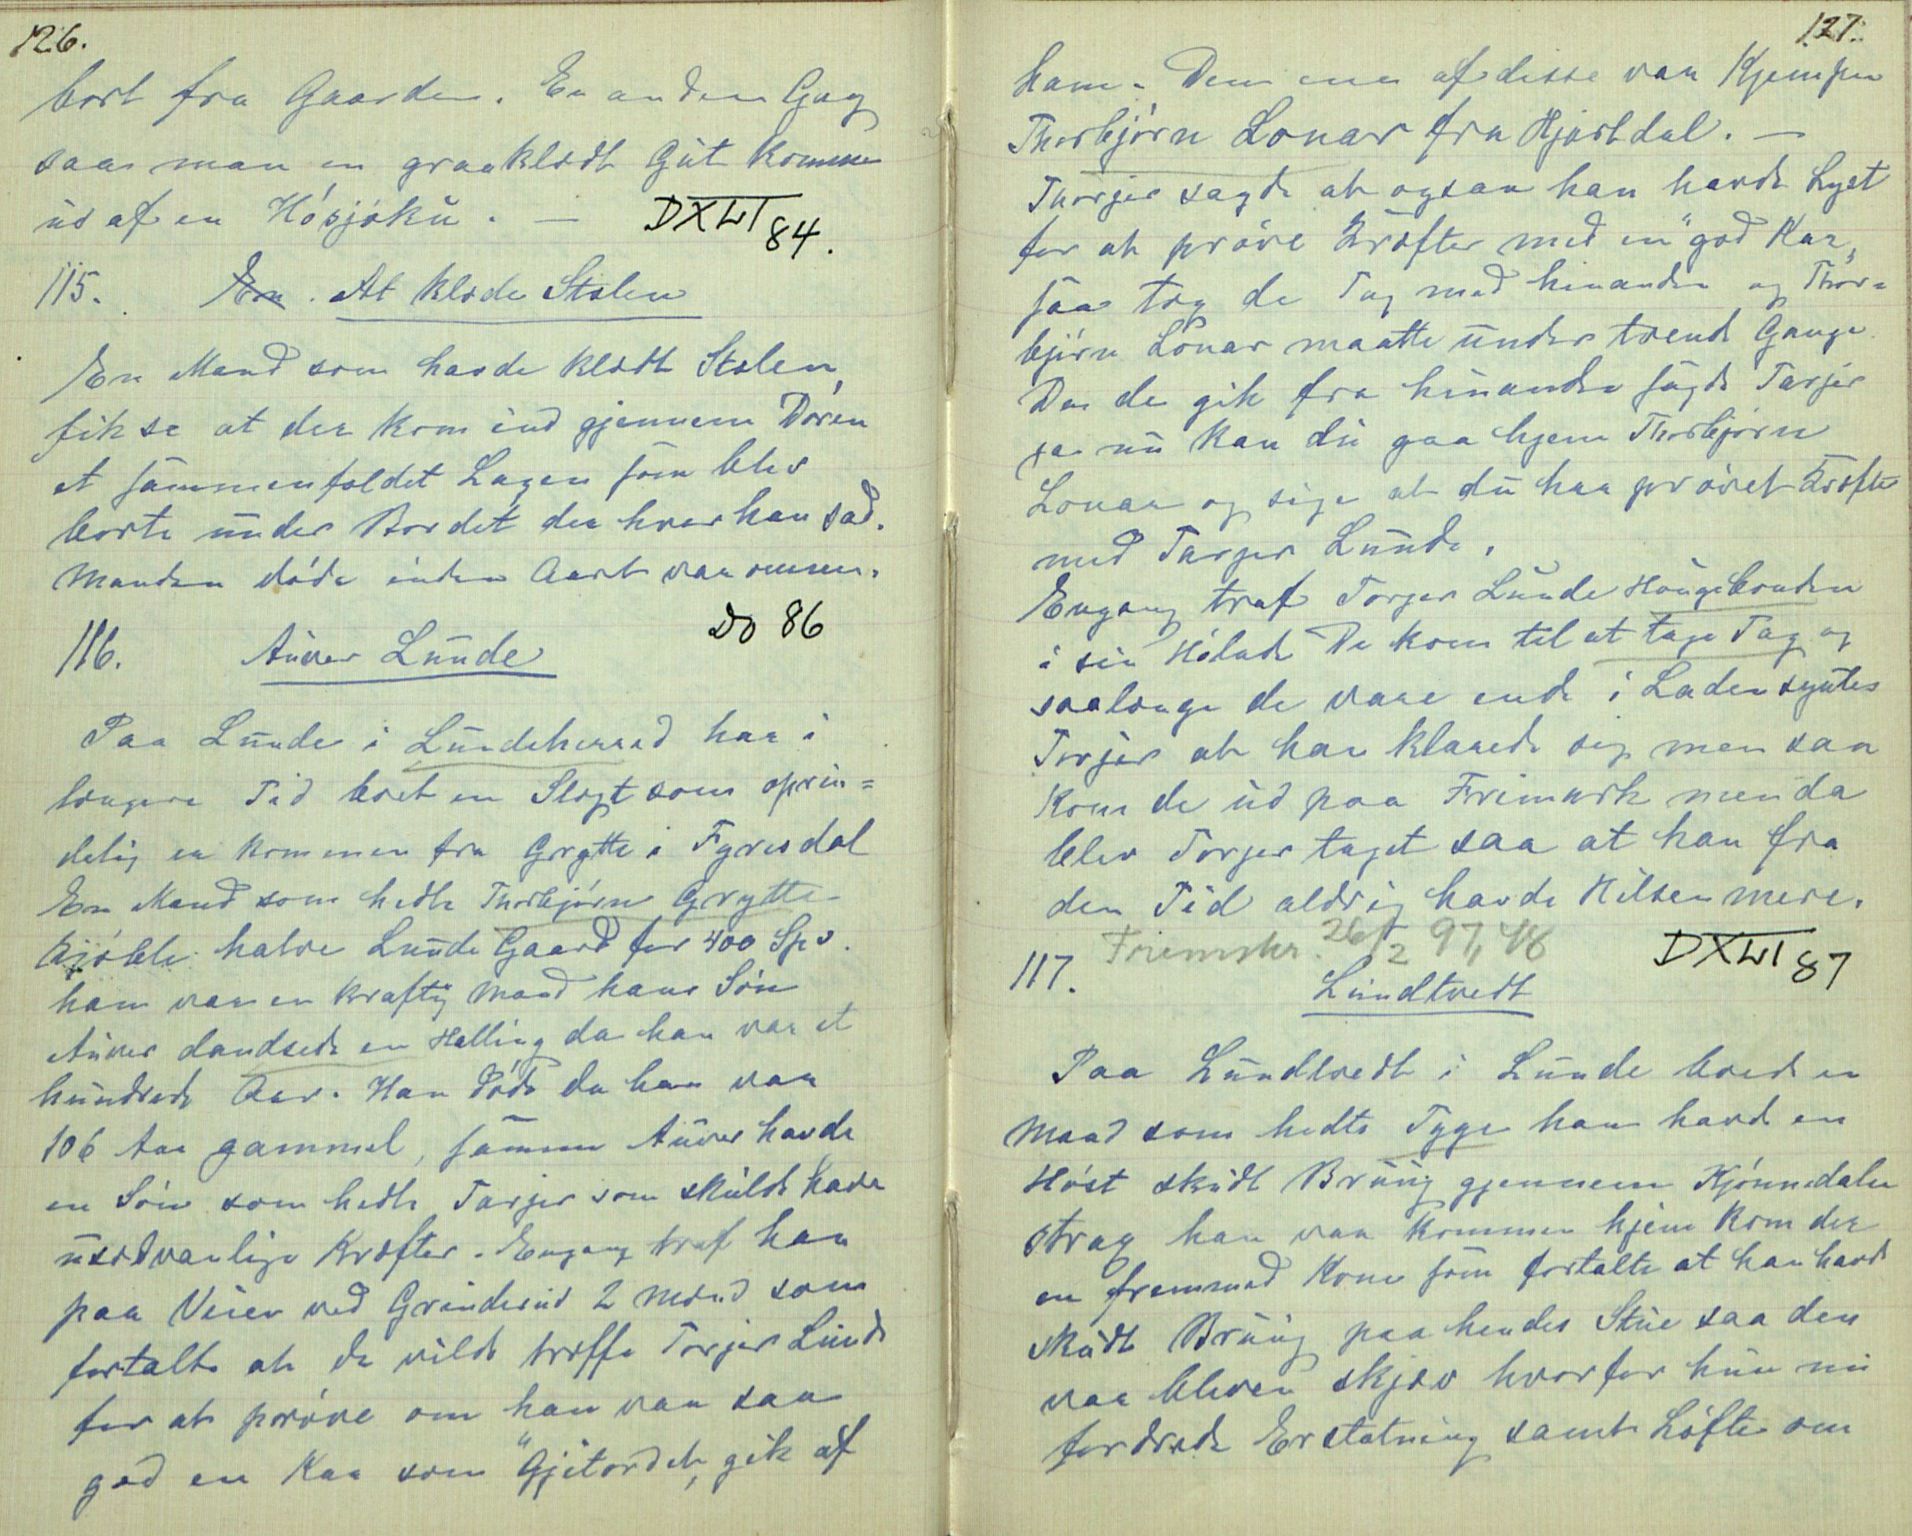 126.
bort fra Gaarden. En anden Gag
saa man en graaklædt Gut komme
ud af en Høsjøku. —
DXLI 84.
115. En. At klæde Stolen
En Mand som havde klædt Stolen
fik se at der kom ind gjennem Døren
et sammenfoldet Lagen som blev
borte under Bordet der hvor han sad.
Manden døde inden Aaret var omme.
DO 86
116. Auver Lunde
Paa Lunde i Lundeherred har i
længere Tid boet en Slægt som oprin=
delig er kommen fra Grytte i Fyresdal
En Mand som hedte Thorbjørn Grytte
kjøbte halve Lunde Gaard for 400 Spd.
han var en kraftig Mand hans Søn
Auver dandsede en Halling da han var et
hundrede Aar. Han døde da han var
106 Aar gammel, samme Auver havde
en Søn som hedte Tarjer som skulde have
usædvanlige Kræfter. Engang traf han
paa Veien ved Grinderud 2 Mænd som
fortalte at de vilde træffe Torjer Lunde
for at prøve om han var saa
god en Kar som "Gjetordet" gik af
127.
ham. Den ene af disse var Kjempen
Thorbjørn Lonar fra Hjartdal. —
Thorjer sagde at ogsaa han havde Lyst
for at prøve Kræfter med en "god Kar"
saa tog de Tag med hinanden og Thor=
bjørn Lonar maatte under trende Gange
Da de gik fra hinanden sagde Tarjer
ja nu kan du gaa hjem Thorbjørn
Lonar og sige at du har prøvet Kræfter
med Tarjer Lunde.
Engang traf Torjer Lunde Haugebonden
i sin Hølade De kom til at tage Tag og
saalænge de vare inde i Laden syntes
Torjer at han klarede sig men saa
kom de ud paa Frimark men da
blev Torjer taget saa at han fra
den Tid aldrig havde Hilsen mere.
Fremskr. 26/2 97, 48
DXLI 87
117. Lundtvedt
Paa Lundtvedt i Lunde boede en
Mand som hedte Tyge han havde en
Høst skudt Bruug gjennem Kjønnedalen
strax han var kommen hjem kom der
en fremmed Kone som fortalte at han havde
skudt Bruug paa hendes Stue saa den
var bleven skjæv hvorfor hun nu
fordrede Erstatning samt Løfte om